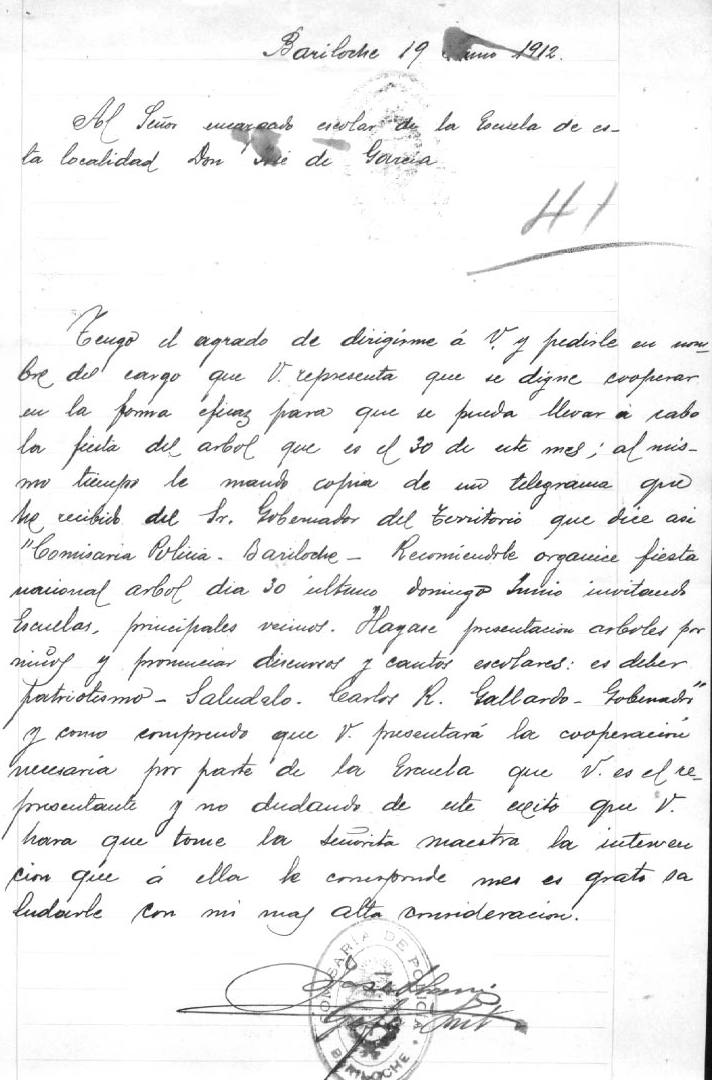 Bariloche 19 Junio 1912.
Al Señor encargado escolar de la Escuela de es-
ta localidad Don José de García
41
Tengo el agrado de dirigirme á V. y pedirle en nom-
bre del cargo que V. representa que se digne cooperar
en la forma eficaz para que se pueda llevar a cabo
la fiesta del arbol que es el 30 de este mes; al mis-
mo tiempo le mando copia de un telegrama que
he recibido del Sr. Gobernador del Territorio que dice asi
"Comisaria Policia - Bariloche - Recomiéndole organice fiesta
nacional arbol dia 30 ultimo domingo Junio invitando
Escuelas, principales vecinos. Hagase presentacion arboles por
niños y pronunciar discursos y cantos escolares: es deber
patriotismo - Saludalo. Carlos R. Gallardo - Gobernador"
y como comprendo que V. presentará la cooperación
necesaria por parte de la Escuela que V. es el re-
presentante y no dudando de este exito que V.
hara que tome la señorita maestra la interven
cion que á ella le corresponde mes es grato sa
ludarle con mi mas alta consideracion.
COMISARIA DE POLICIA
BARILOCHE